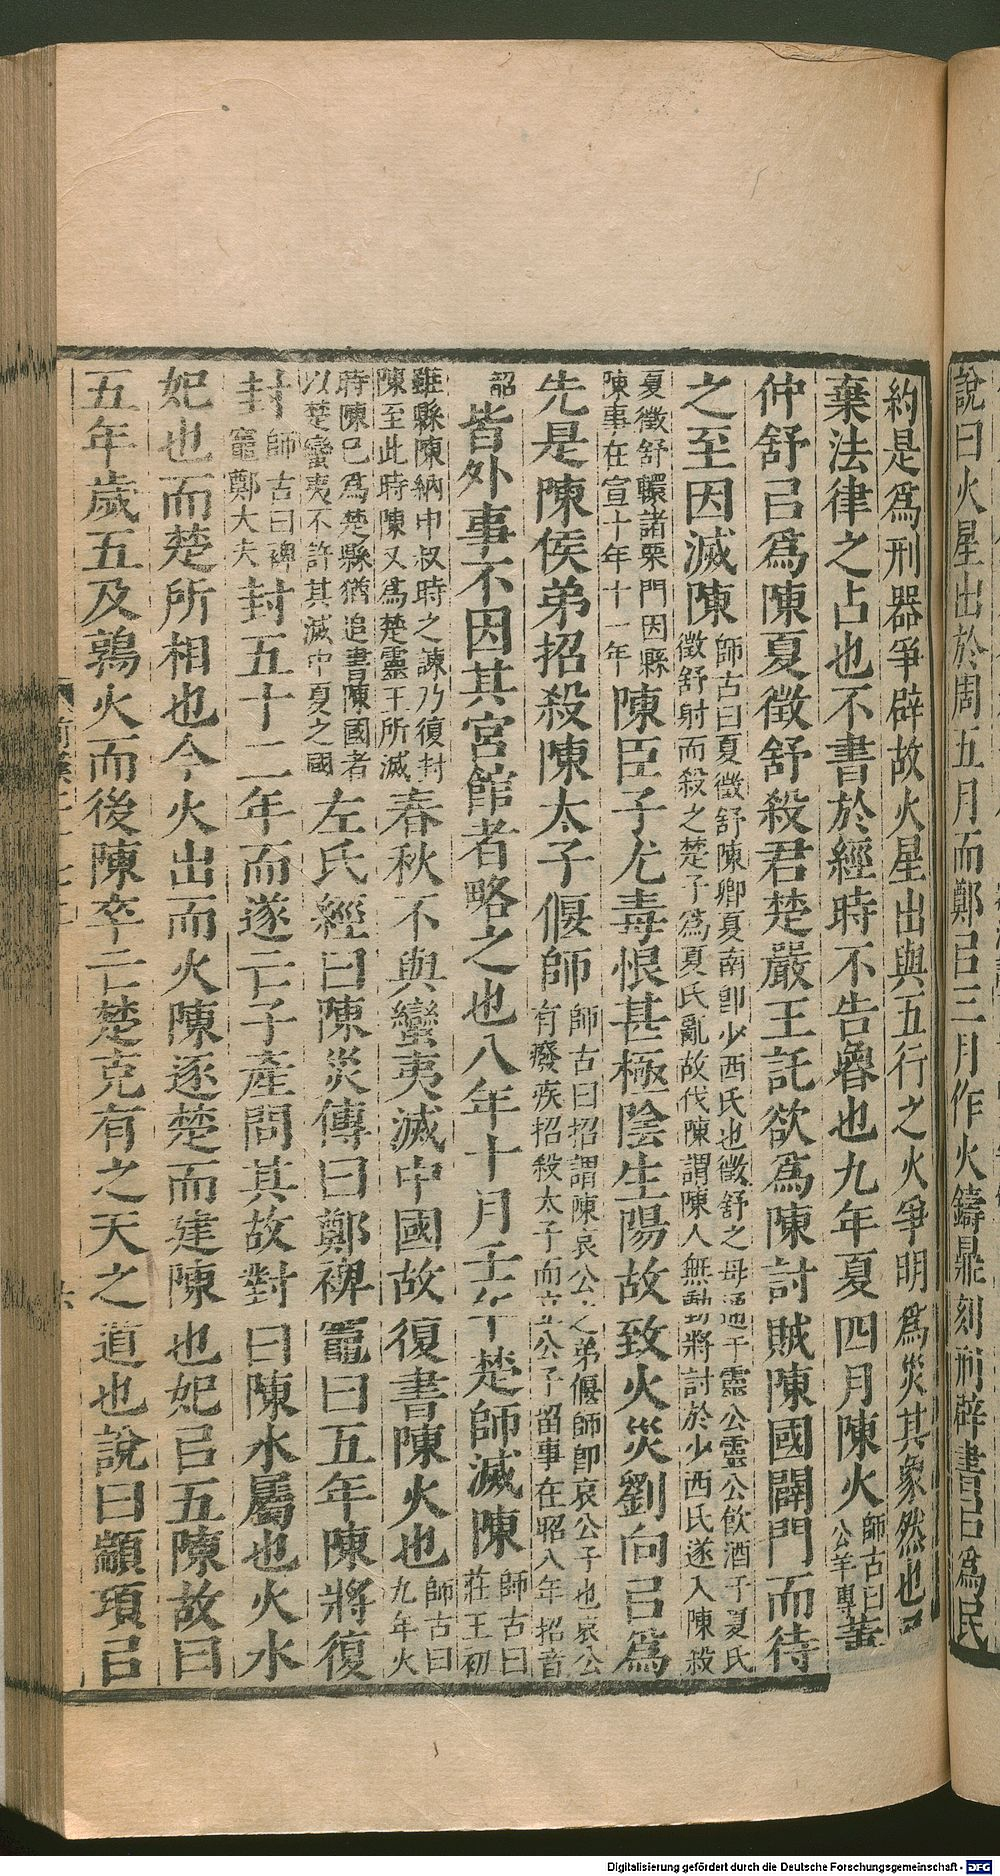 說曰火星出於周五月而鄭㠯三月作火鑄鼎刻刑辟書㠯爲民
約是爲刑器爭辟故火星出與五行之火爭明爲災其象然也又
棄法律之占也不書於經時不告魯也九年夏四月陳火師古曰公羊專董
仲舒㠯爲陳夏徵舒殺君楚嚴王託欲爲陳討賊陳國闢門而待
之至因滅陳師古曰夏徵舒陳卿夏南卽少西氏也徵舒之母通于靈公靈公飲酒于夏氏徵舒射而殺之楚子爲夏氏亂故伐陳謂陳人無動將討於少西氏遂入陳殺
夏徵舒轘諸栗門因縣陳事在宣十年十一年陳臣子尤毒恨甚極陰生陽故致火災劉向㠯爲
先是陳侯弟招殺陳太子偃師師古曰招謂陳哀公之弟偃師卽哀公子也哀公有癈疾招殺太子而立公子留事在昭八年招音
韶皆外事不因其宮館者略之也八年十月壬午楚師滅陳師古曰莊王初
雖縣陳納申叔時之諫乃復封陳至此時陳又爲楚靈王所滅春秋不與蠻夷滅中國故復書陳火也師古曰九年火
時陳巳爲楚縣猶追書陳國者以楚蠻夷不許其滅中夏之國左氏經曰陳災傳曰鄭裨竈曰五年陳將復
封師古曰裨竈鄭大夫封五十二年而遂亡子產問其故對曰陳水屬也火水
妃也而楚所相也今火出而火陳逐楚而建陳也妃㠯五陳故曰
五年歲五及鶉火而後陳卒亡楚克有之天之道也說曰顓頊㠯
Digitalisierung gefördert durch die Deutsche Forschungsgemeinschaft - DFG